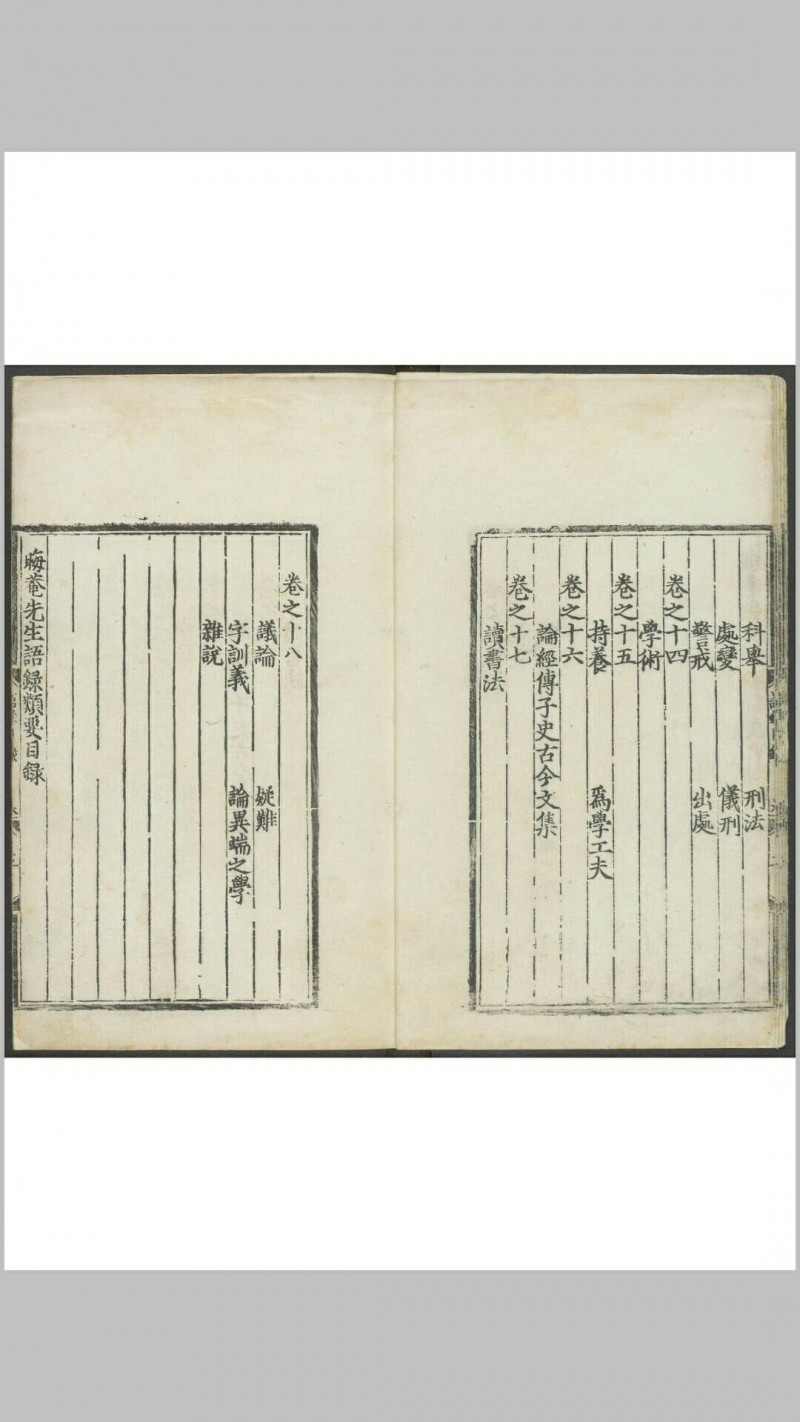 科舉　刑法
處變　儀刑
警戒　出處
卷之十四
學術
卷之十五
持養　爲學工夫
卷之十六
論經傳子史古今文集
卷之十七
讀書法
卷之十八
議論　疑難
字訓義　論異端之學
雜説
晦菴先生語錄類要目録